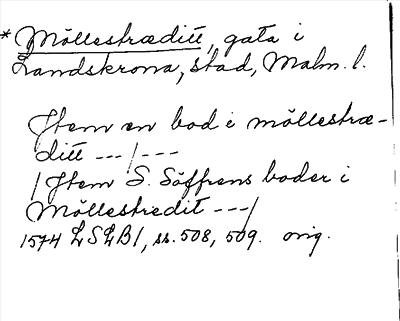 * Möllestræditt, gata i
Landskrona, stad, Malm. l.
Jtem en bod i möllestræ-
ditt --- / ---
/ Jtem S. Söffrens boder i
Möllestredit --- /
1574 LSLB1, ss. 508, 509. orig.